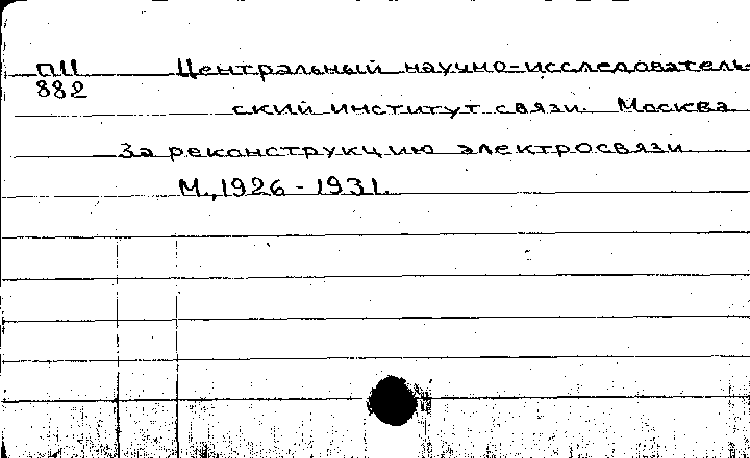 П11 Центральный научно-исследователь-
882
ский институт связи. Москва
За реконструкцию электросвязи
М., 1926 - 1931.